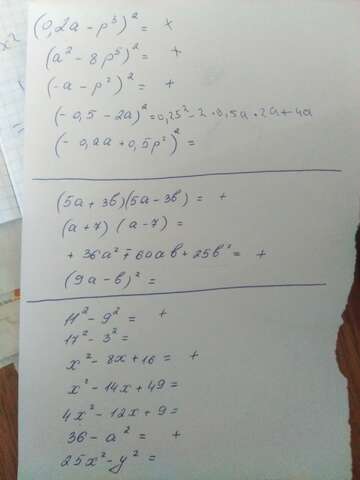 (0,2a - p³)² = +
(a² - 8p⁵)² = +
(-a - p²)² = +
(-0,5 - 2a)² = 0,25² - 2·0,5a·2a + 4a
(-0,2a + 0,5p²)² =
(5a + 3b)(5a - 3b) = +
(a + 7)(a - 7) =
+ 36a² ∓ 60ab + 25b² = +
(9a - b)² =
11² - 9² = +
17² - 3² =
x² - 8x + 16 = +
x² - 14x + 49 =
4x² - 12x + 9 =
36 - a² = +
25x² - y² =